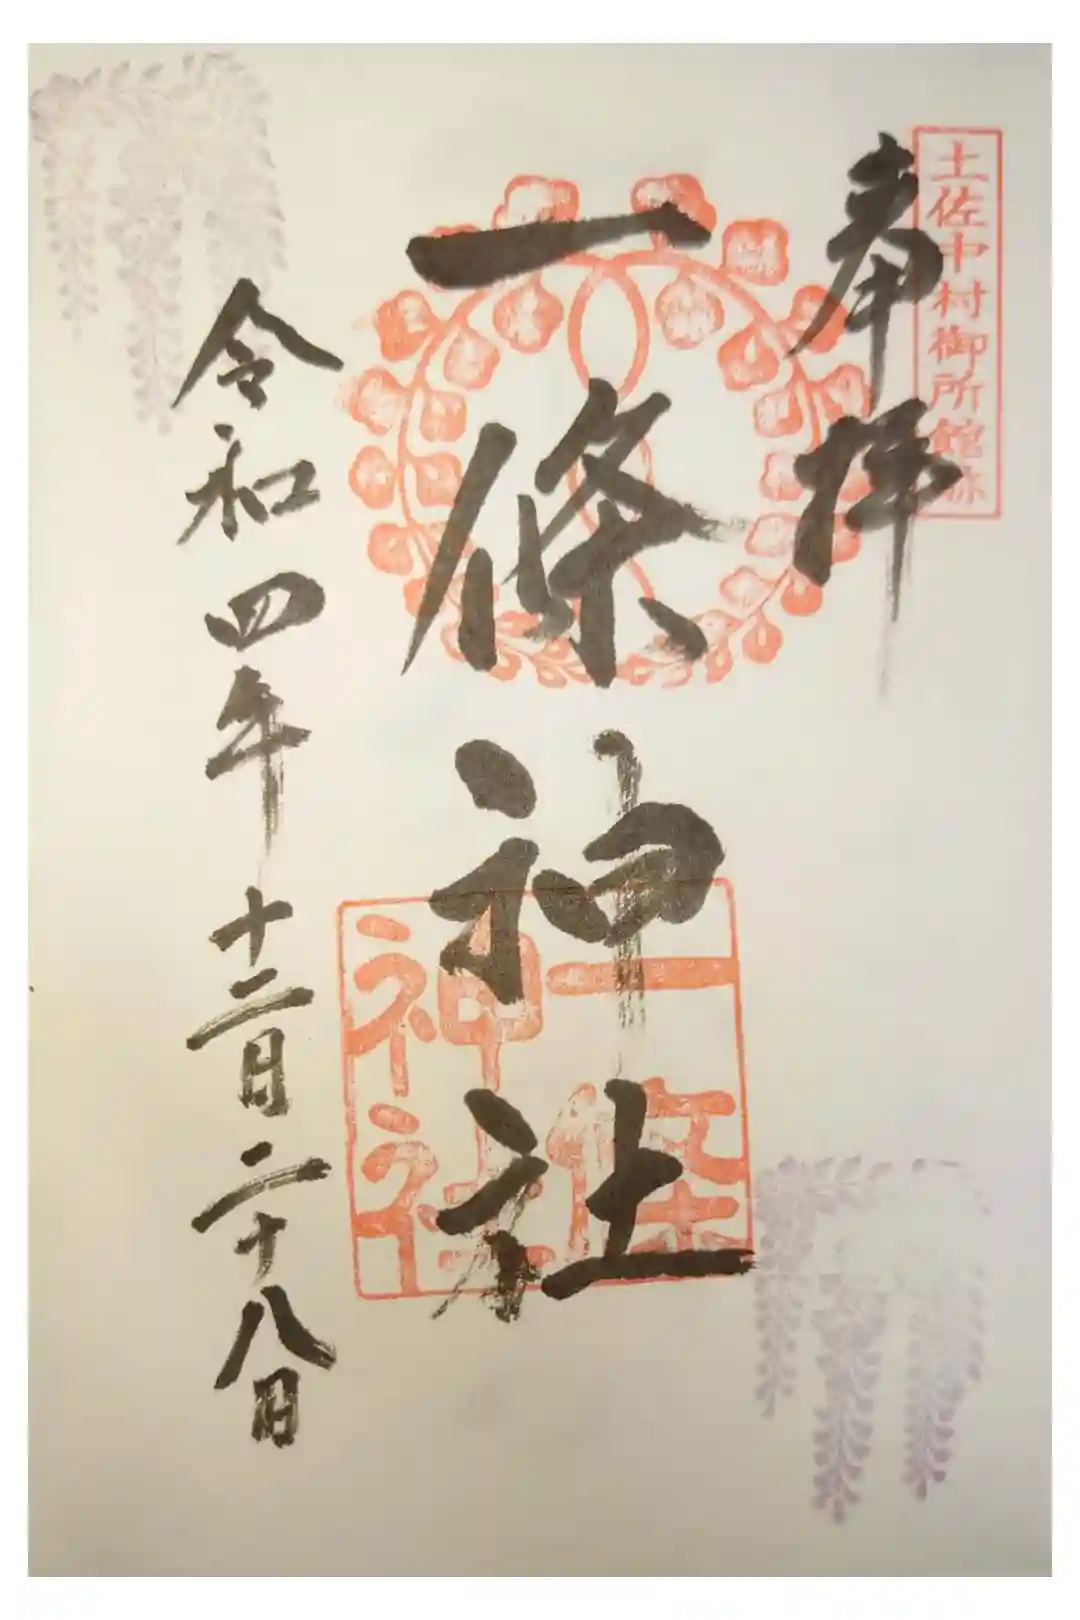 土佐中村御所館跡
奉拝
一條神社
一條神社
令和四年十二月二十八日